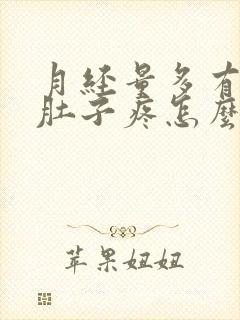 月经量多有
肚子疼怎麼
苹果妞妞